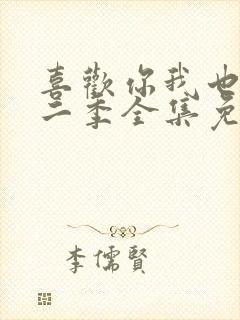 喜歡你我也
二季全集免
李儒賢